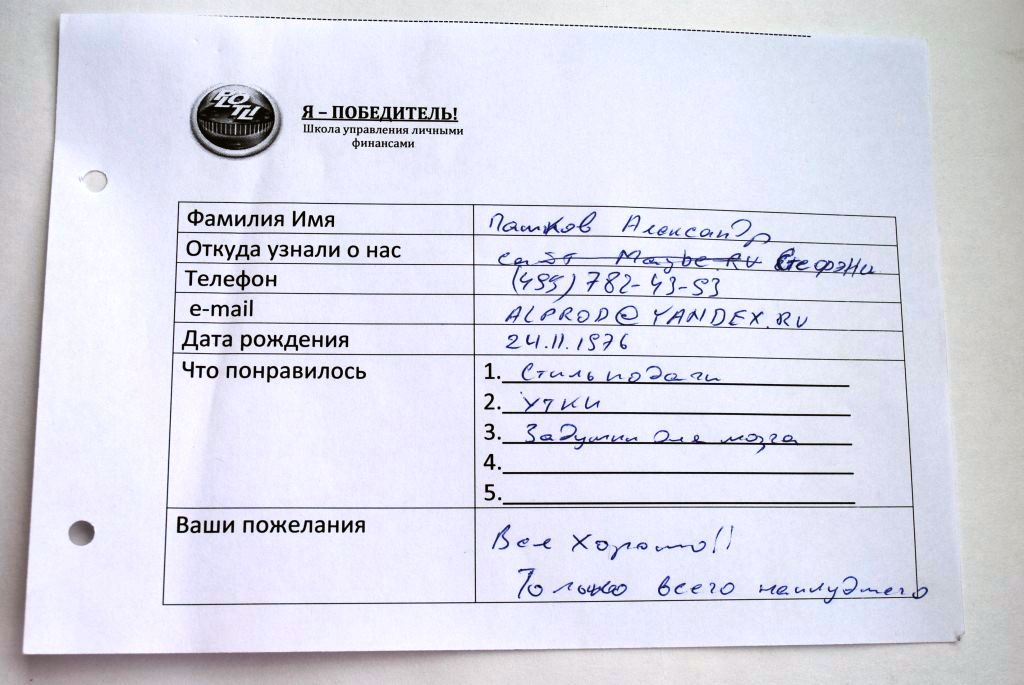 ROTL!
Я – ПОБЕДИТЕЛЬ!
Школа управления личными
финансами
Фамилия Имя Пашков Александр
Откуда узнали о нас сайт Maybe.RU Стефэни
Телефон (499) 782-43-93
e-mail ALPROD@YANDEX.RU
Дата рождения 24.11.1976
Что понравилось 1. Стиль подачи
2. Утки
3. Задумки для мозга
4.
5.
Ваши пожелания Все хорошо!!
Только всего наилучшего